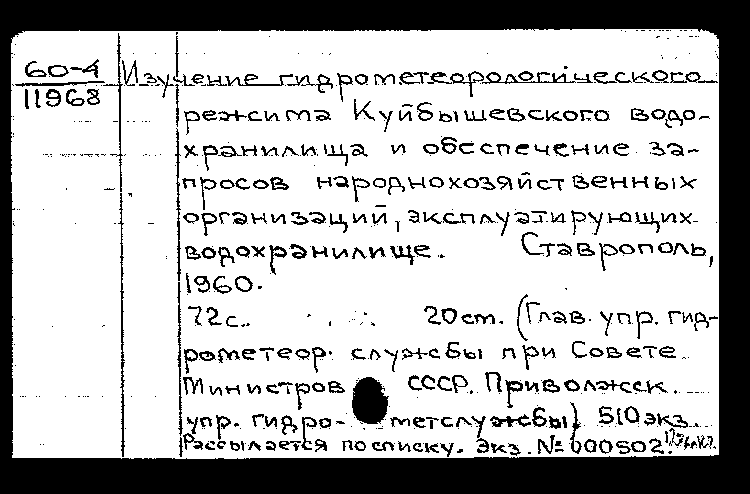 60-4
11968
Изучение гидрометеорологического
режима Куйбышевского водо-
хранилища и обеспечение за-
просов народнохозяйственных
организаций, эксплуатирующих
водохранилище. Ставрополь,
1960.
72с. 20см. (Глав. упр. гид-
рометеор. службы при Совете
Министров СССР. Приволжск.
упр. гидро- метслужбы) 510экз.
Рассылается по списку. экз. № 000502.